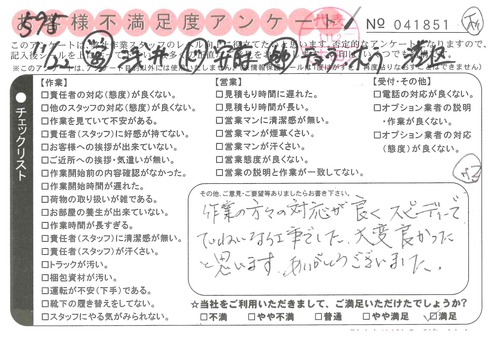 お客様不満足度アンケート
No 041851
チェックリスト
【作業】
□責任者の対応(態度)が良くない。
□他のスタッフの対応(態度)が良くない。
□作業を見ていて不安がある。
□責任者(スタッフ)に好感が持てない。
□お客様への挨拶が出来ていない。
□ご近所への挨拶・気遣いが無い。
□作業開始前の内容確認がなかった。
□作業開始時間が遅れた。
□荷物の取り扱いが雑である。
□お部屋の養生が出来ていない。
□作業時間が長すぎる。
□責任者(スタッフ)に清潔感が無い。
□責任者(スタッフ)が汗くさい。
□トラックが汚い。
□梱包資材が汚い。
□運転が不安(下手)である。
□靴下の履き替えをしてない。
□スタッフにやる気がみられない。
【営業】
□見積もり時間に遅れた。
□見積もり時間が長い。
□営業マンに清潔感が無い。
□営業マンが煙草くさい。
□営業マンが汗くさい。
□営業態度が良くない。
□営業の説明と作業が一致してない。
【受付・その他】
□電話の対応が良くない。
□オプション業者の説明
・作業が良くない。
□オプション業者の対応
(態度)が良くない。
その他、ご意見・ご要望等ありましたらお書き下さい。
作業の方々の対応が良く スピーディーで
ていねいな工事でした。大変良かった
と思います。ありがとうございました。
☆当社をご利用いただきまして、ご満足いただけたでしょうか?
□不満 □やや不満 □普通 □やや満足 ☑満足